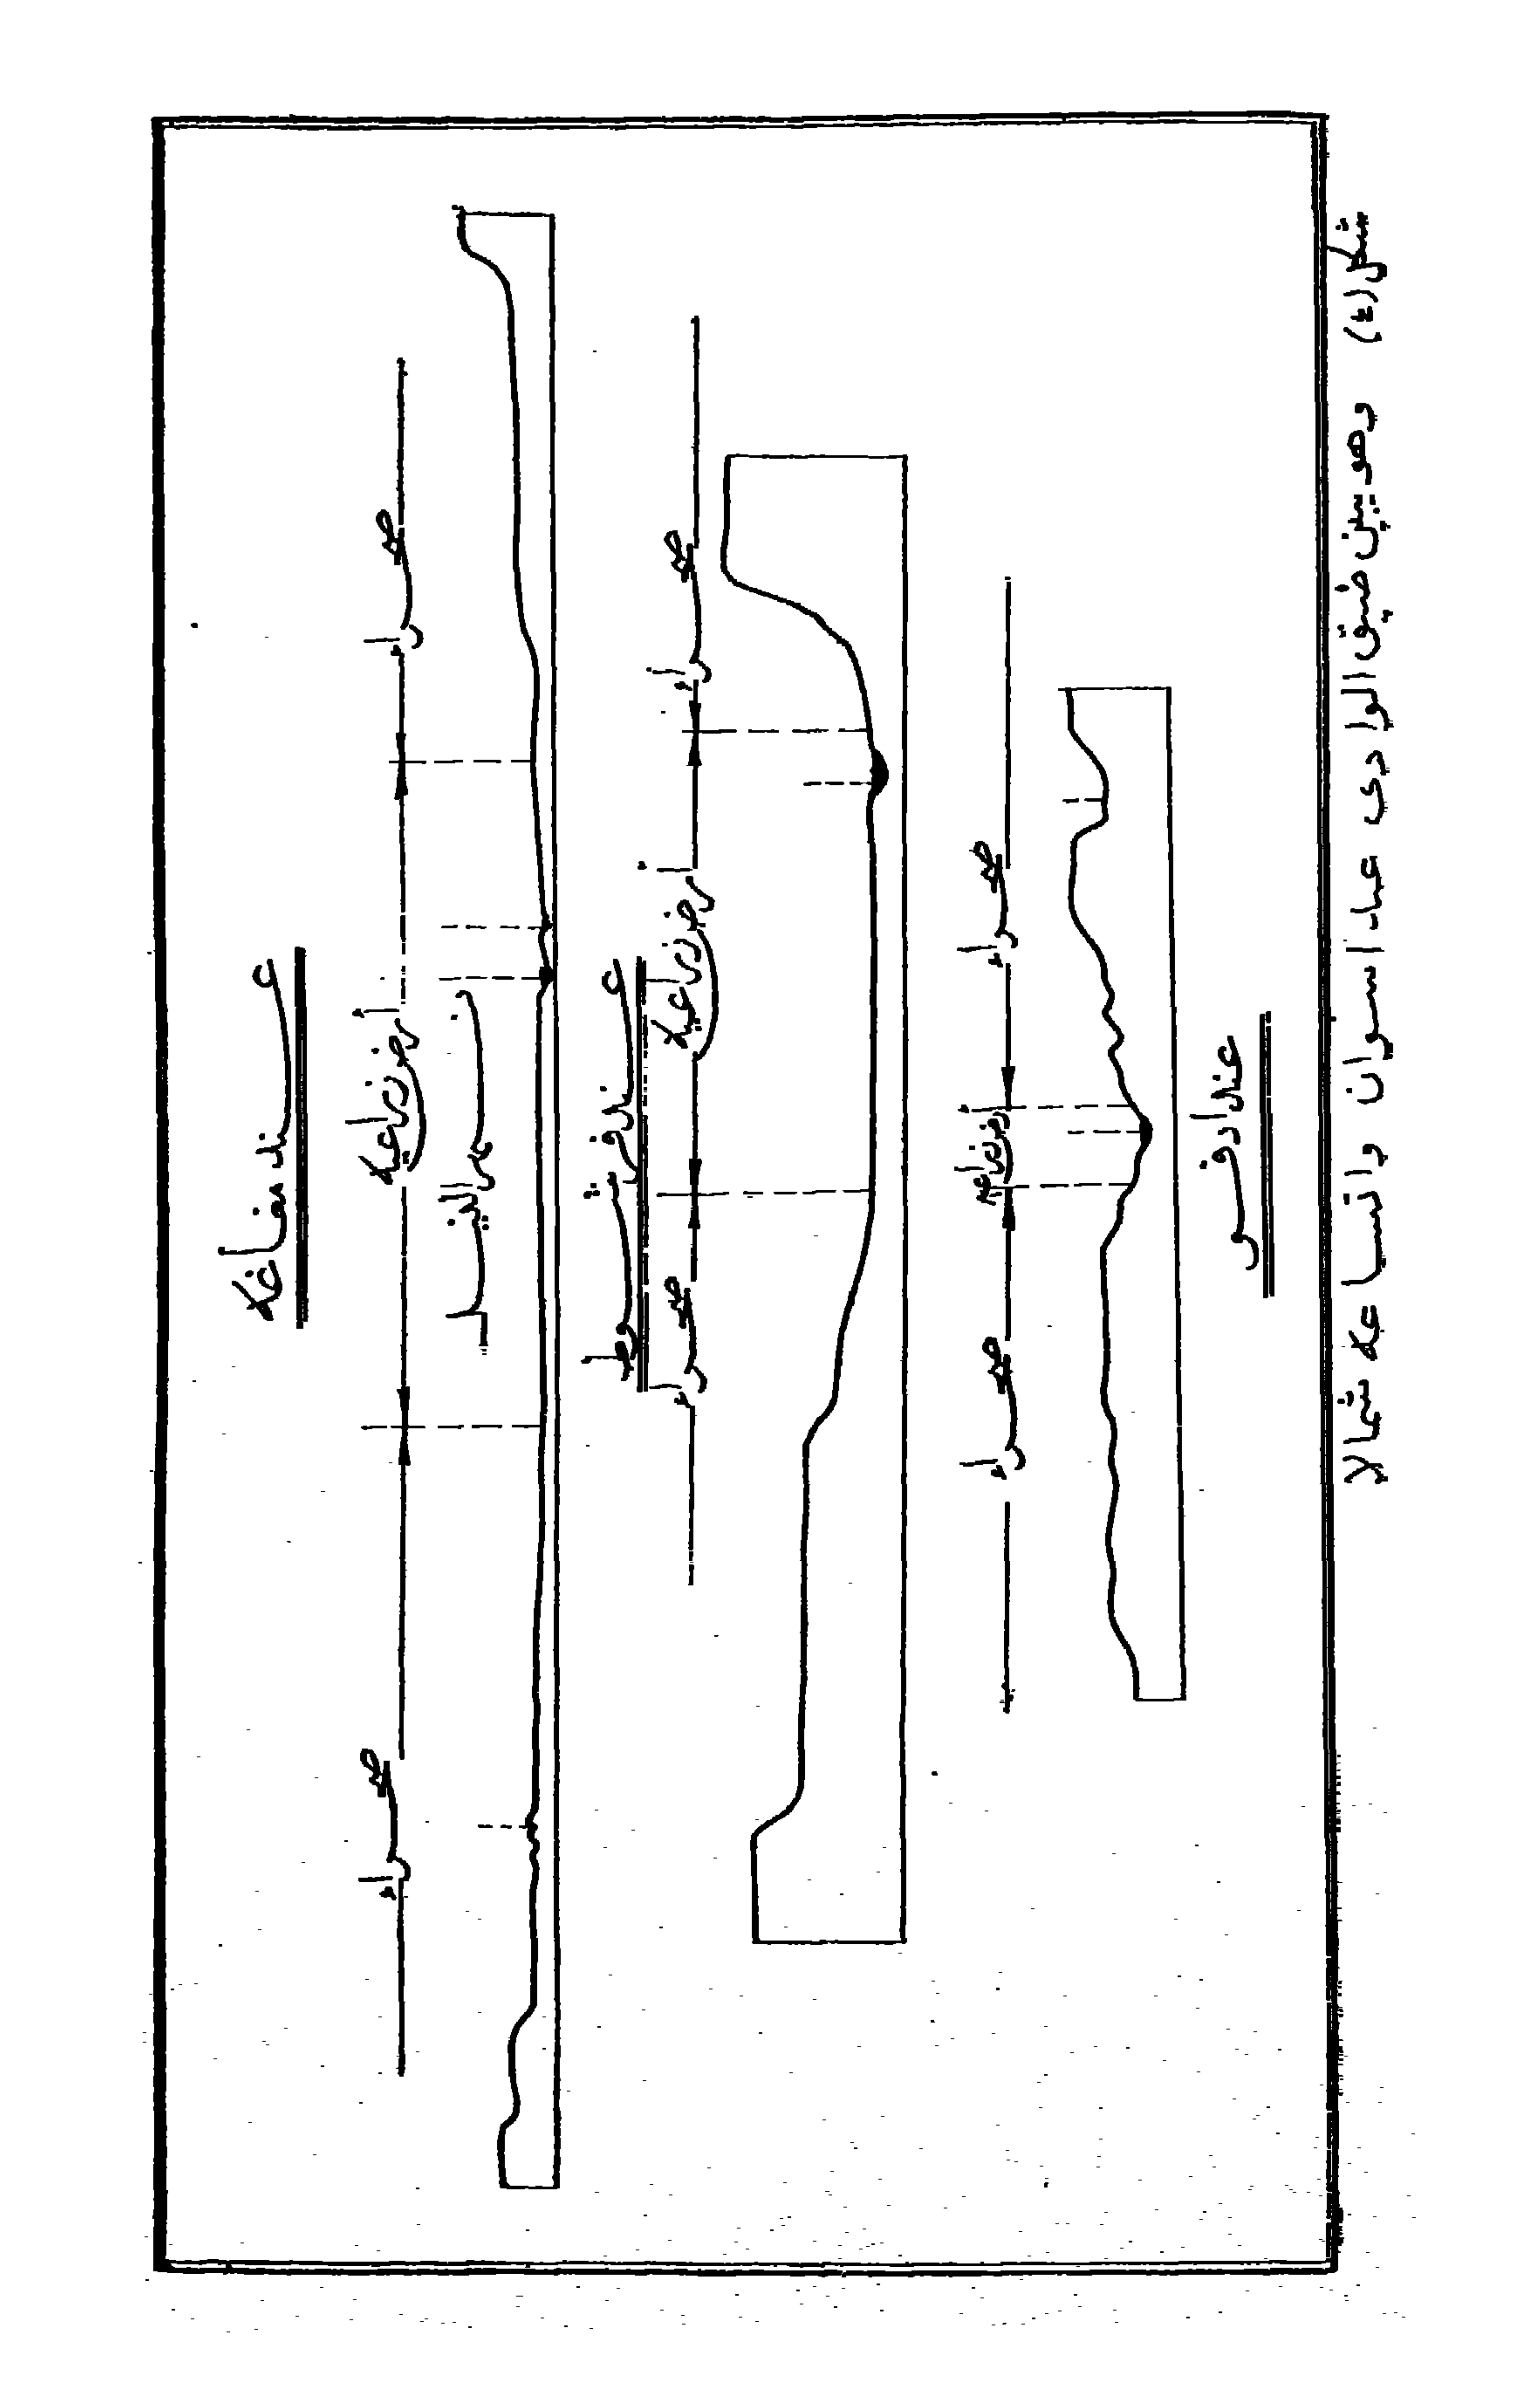 عند مغاغه
صحراء أرض زراعية صحراء
نهر النيل
عند فرشوط
صحراء أرض زراعية صحراء
صحراء أرض زراعية صحراء
عند أدفو
شكل (٤) وهو يبين ضيق الوادى عند اسوان واتساعه شمالا